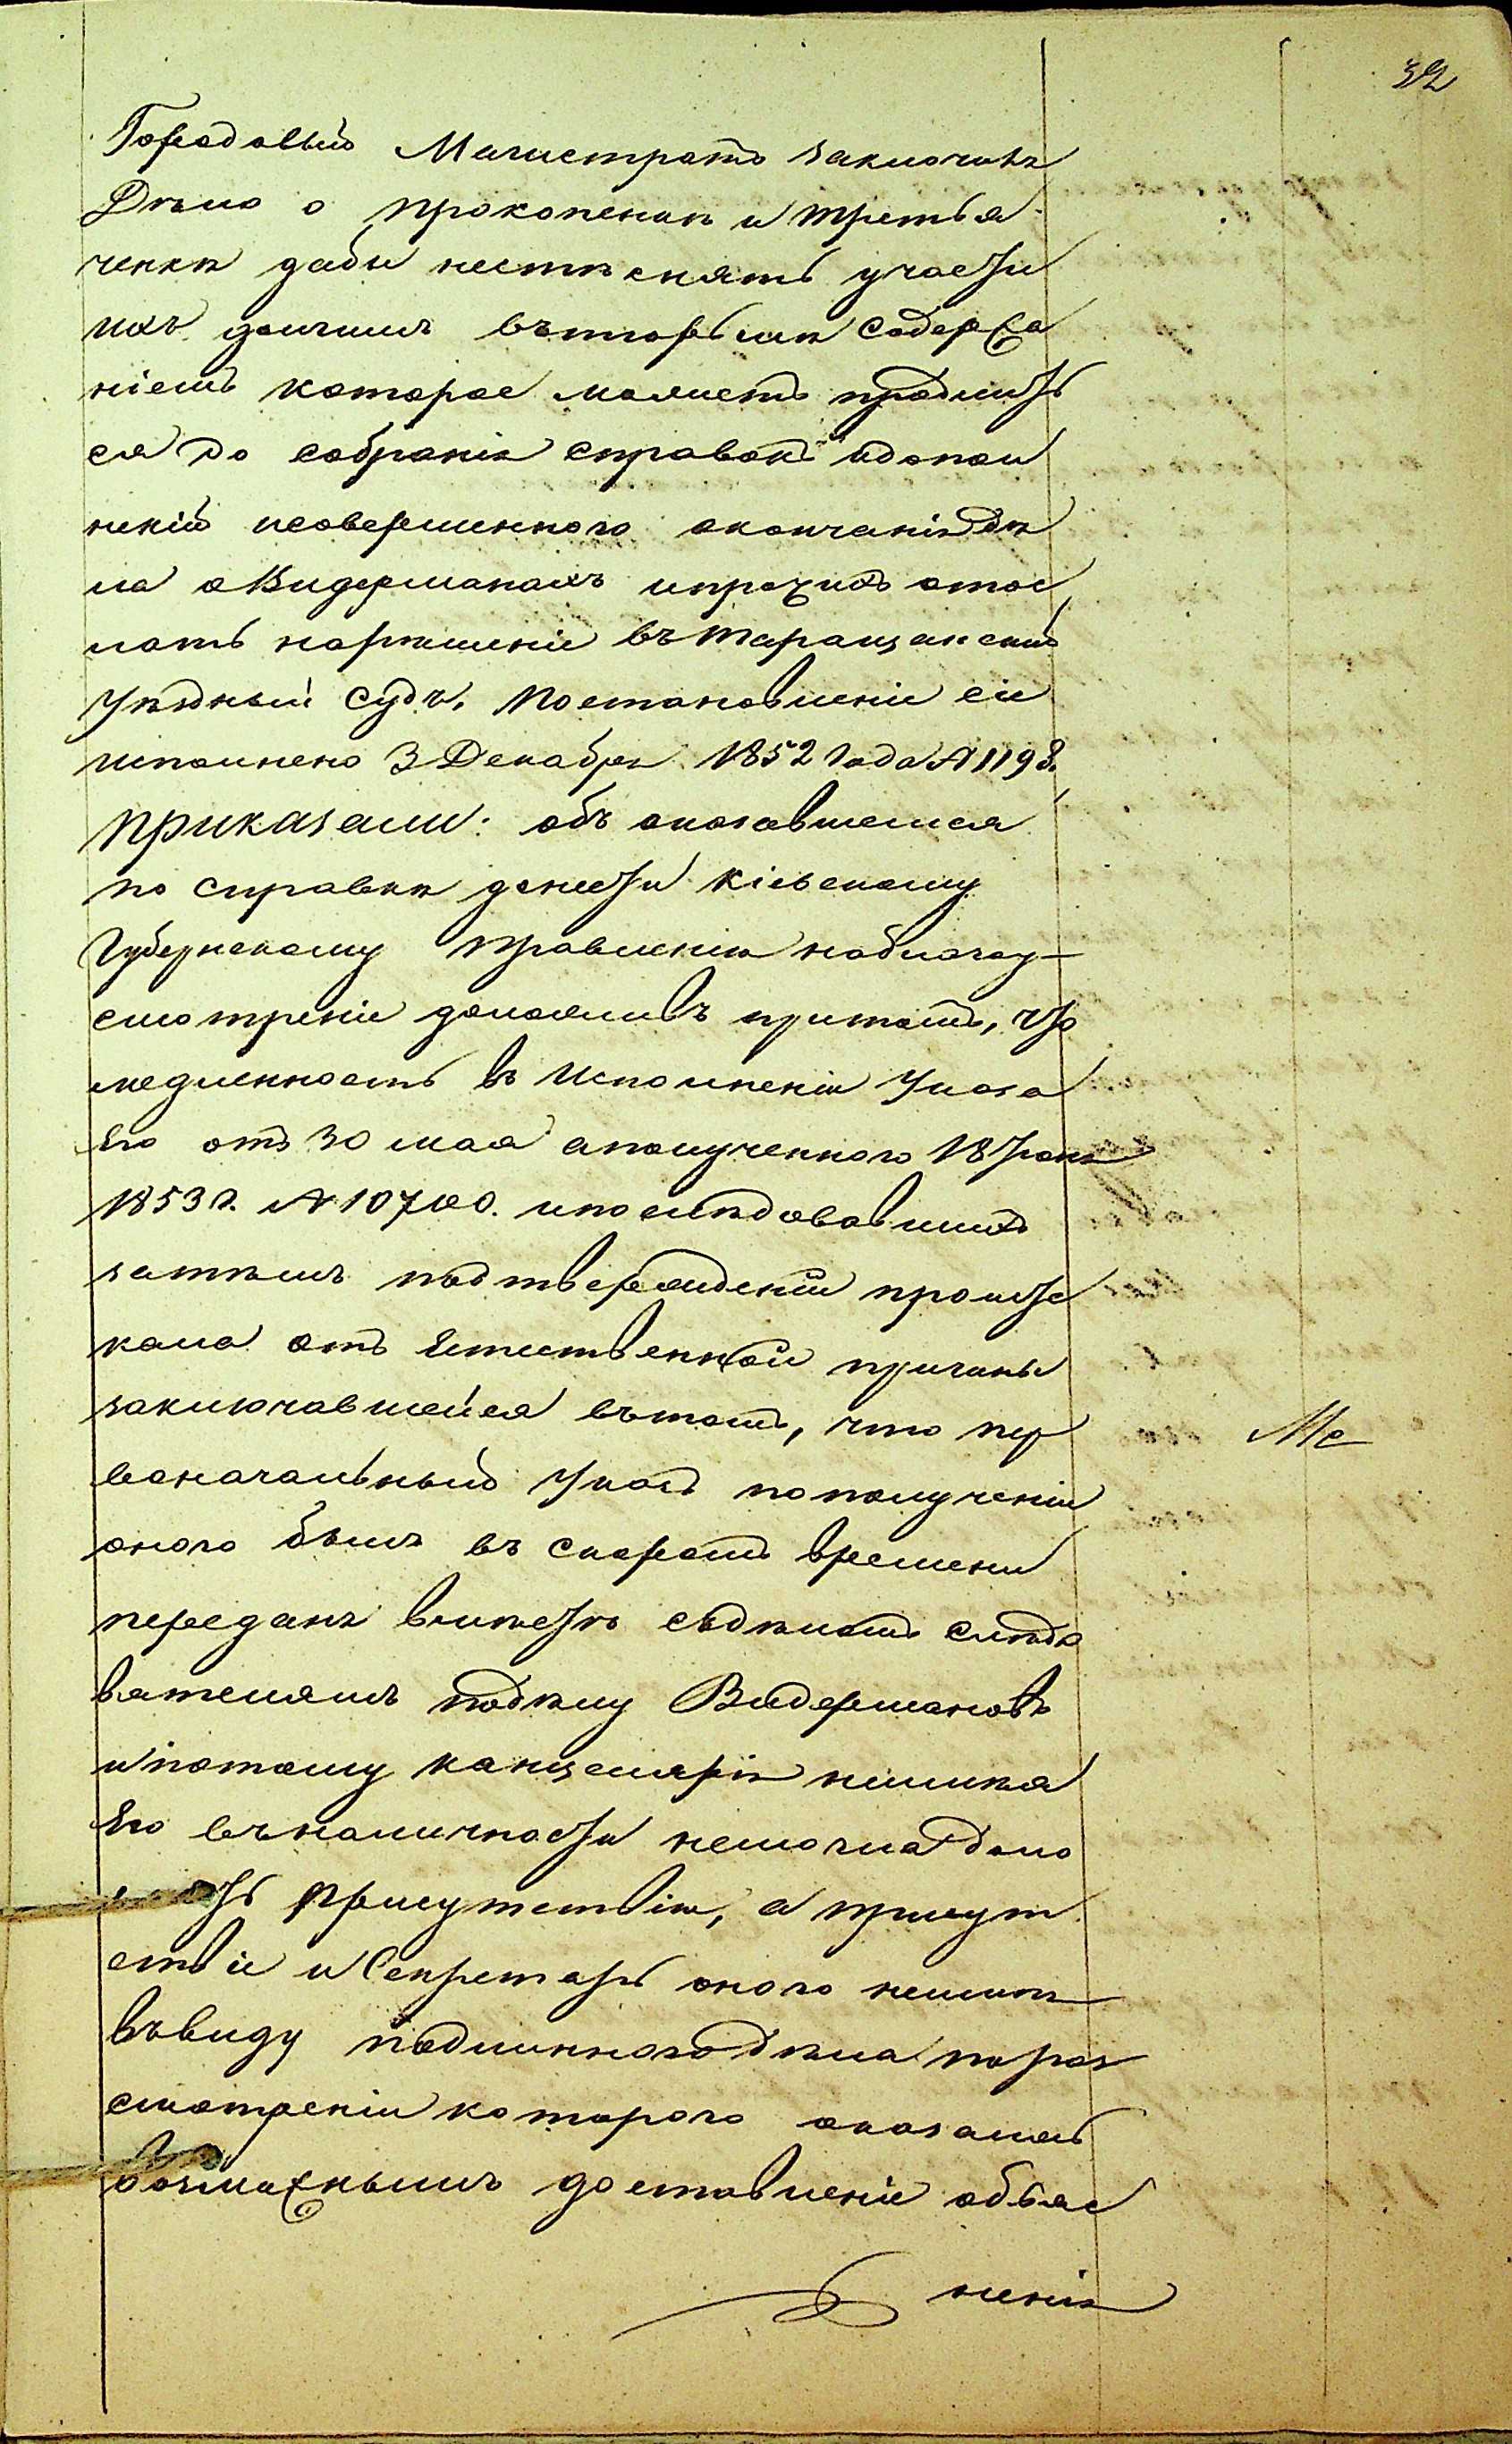 32
Городовый Магистратъ заключивъ
Дѣло о Прокопенкѣ и Третья
ченкѣ дабы нестѣснять участи
ихъ долгимъ вътюрьмѣ содержа
ніемъ которое можетъ продлить
ся до собранія справокъ идопол
неній исовершенного окончанія дѣ
ла оВидерманахъ ипрочихъ отос
лать нарѣшеніе въ Таращанскій
Уѣздный Судъ. Постановленіе сіе
исполнено 3 Декабря 1852 года №1198.
Приказали: объ оказавшемся
по справкѣ донести Кіевскому
Губернскому Правленію наблагоу-
смотрѣніе доложивъ притомъ, что
медленность въ Исполненіи Указа
Его отъ 30 мая аполученного 18 Іюня
1853 г. № 10700. ипослѣдовавшихъ
затѣмъ подтвержденій проис
кала отъ Естественной причины
заключавшейся вътомъ, что пер
воначальный Указъ пополученіи
оного былъ въ скоромъ времени
переданъ вмѣстѣ съдѣломъ слѣдо
вателямъ подѣлу Видермановъ
ипотому канцелярія неимѣя
Его въналичности немогла доло
жить Присутствію, а присут
ствіе и Секретарь оного неимѣя
въвиду подлиннаго дѣла пораз
смотреніи которого оказалось
возможнымъ доставленіе объяс
ненія
Ме